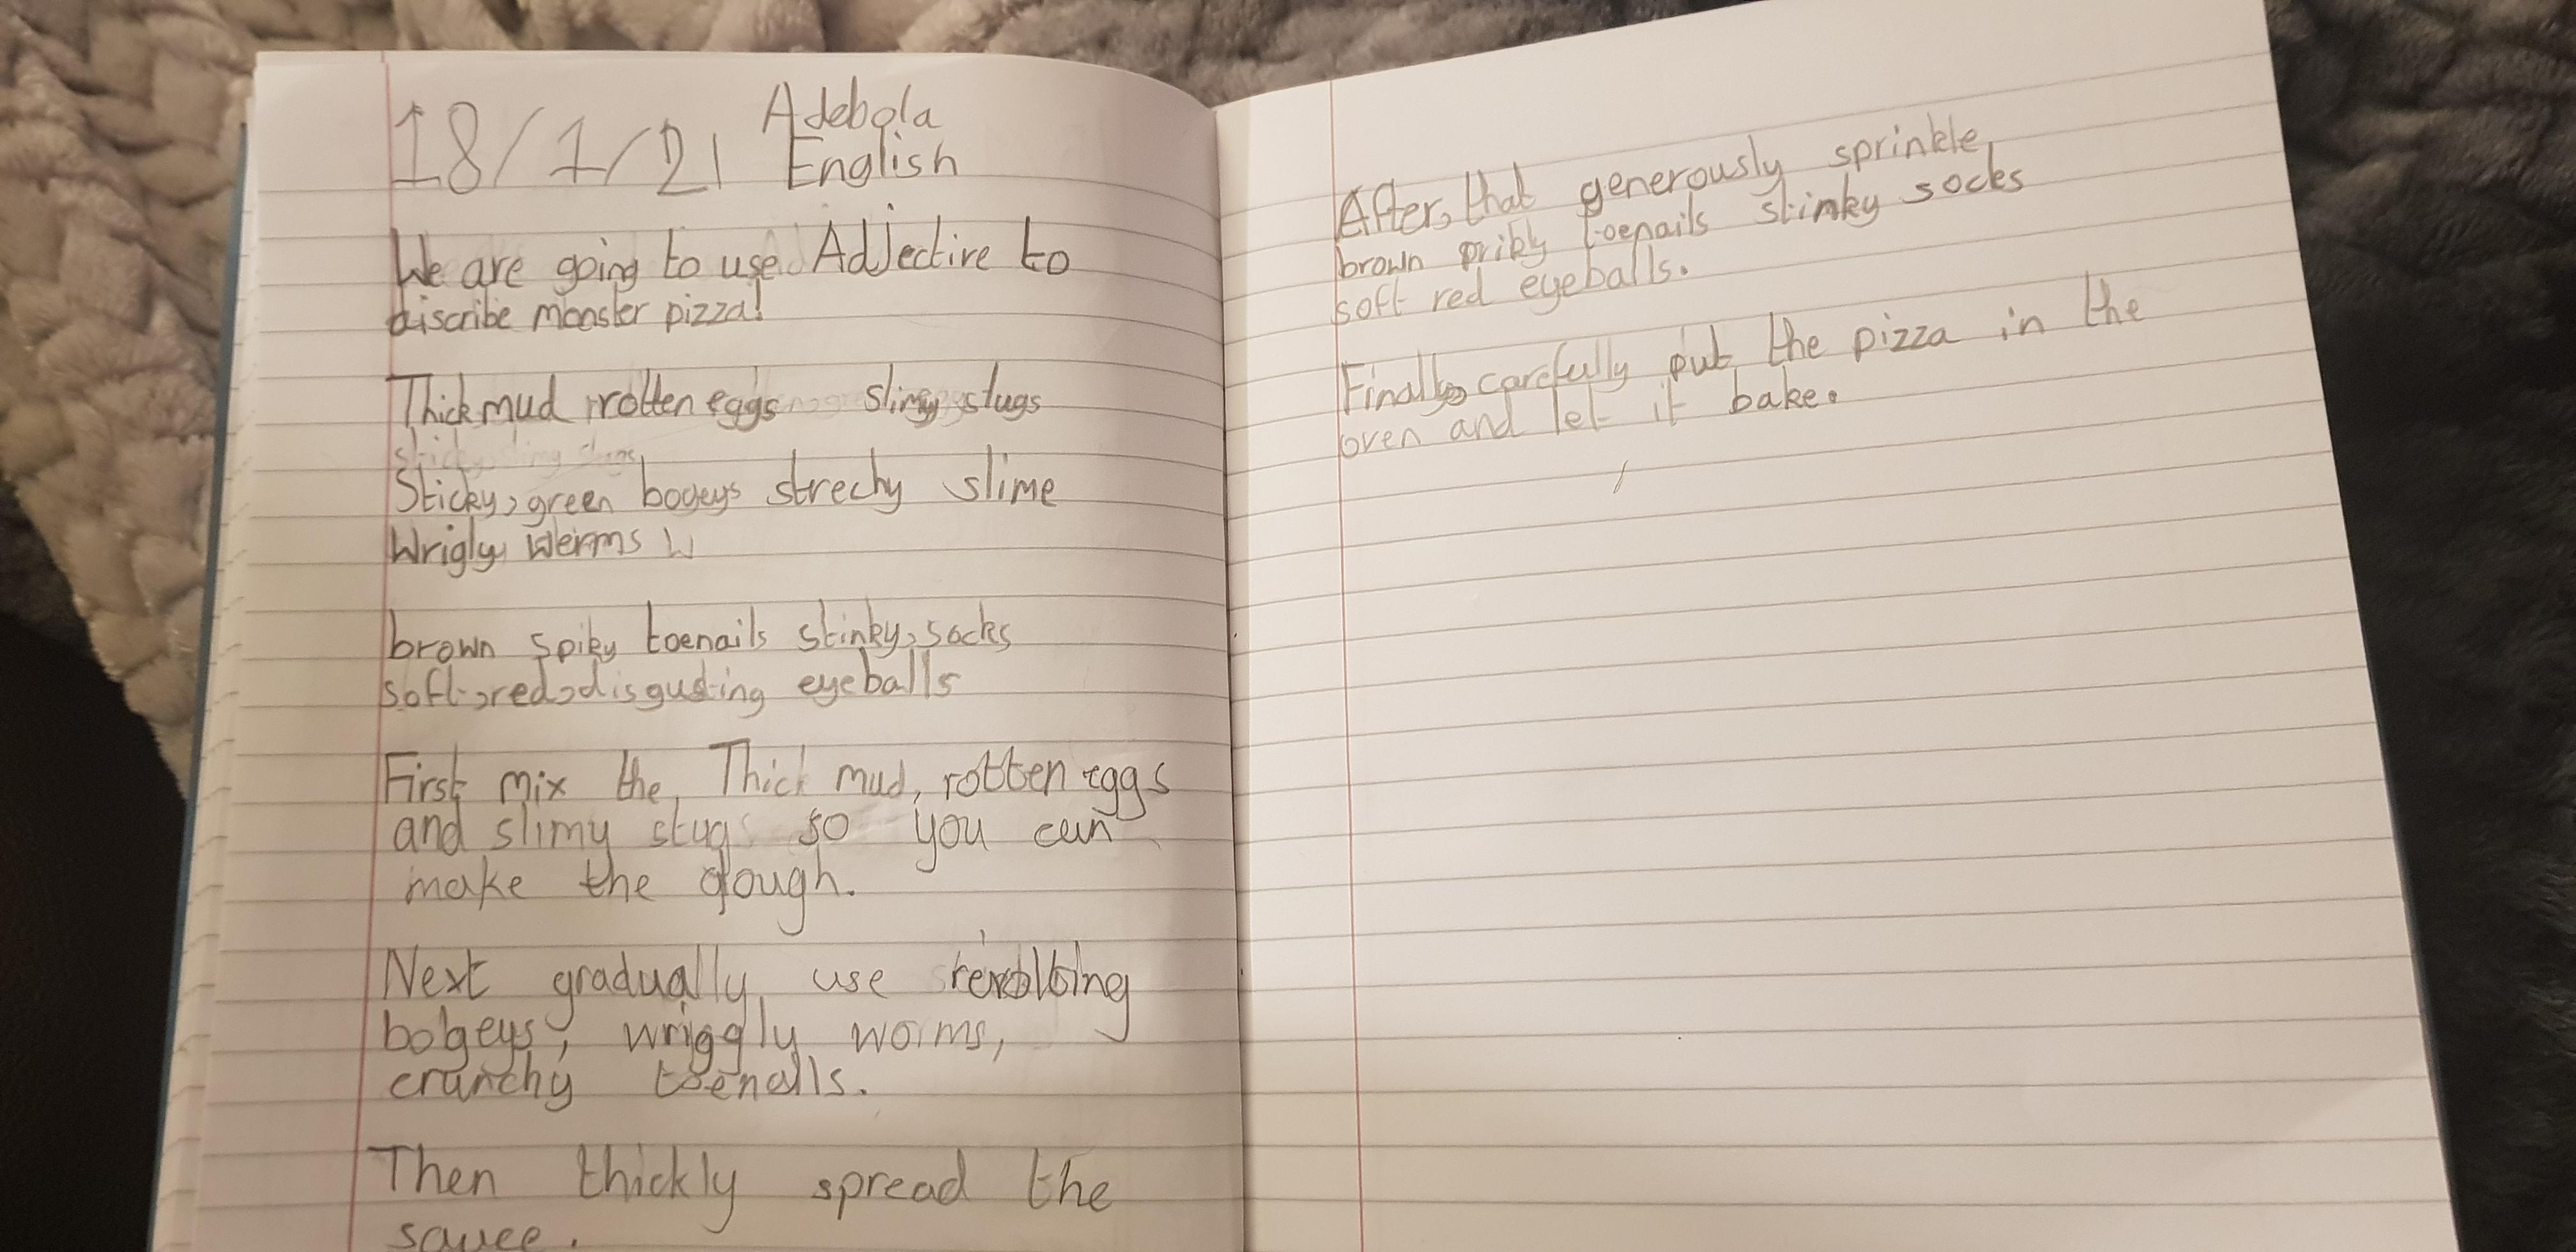 18/1/21 Adebola
English
We are going to use Adjective to
discribe monster pizza!
Thick mud rotten eggs slimy slugs
Sticky, green bogeys strechy slime
Wrigly werms W
brown spiky toenails stinky, socks
soft, red, disgusting eyeballs
First mix the Thick mud, rotten eggs
and slimy slugs so you can
make the dough.
Next gradually use revolting
bogeys, wriggly worms,
crunchy toenalls.
Then thickly spread the
sauce.
After, that generously sprinkle
brown prikly toenails stinky socks
soft red eyeballs.
Finally, carefully put the pizza in the
oven and let it bake.